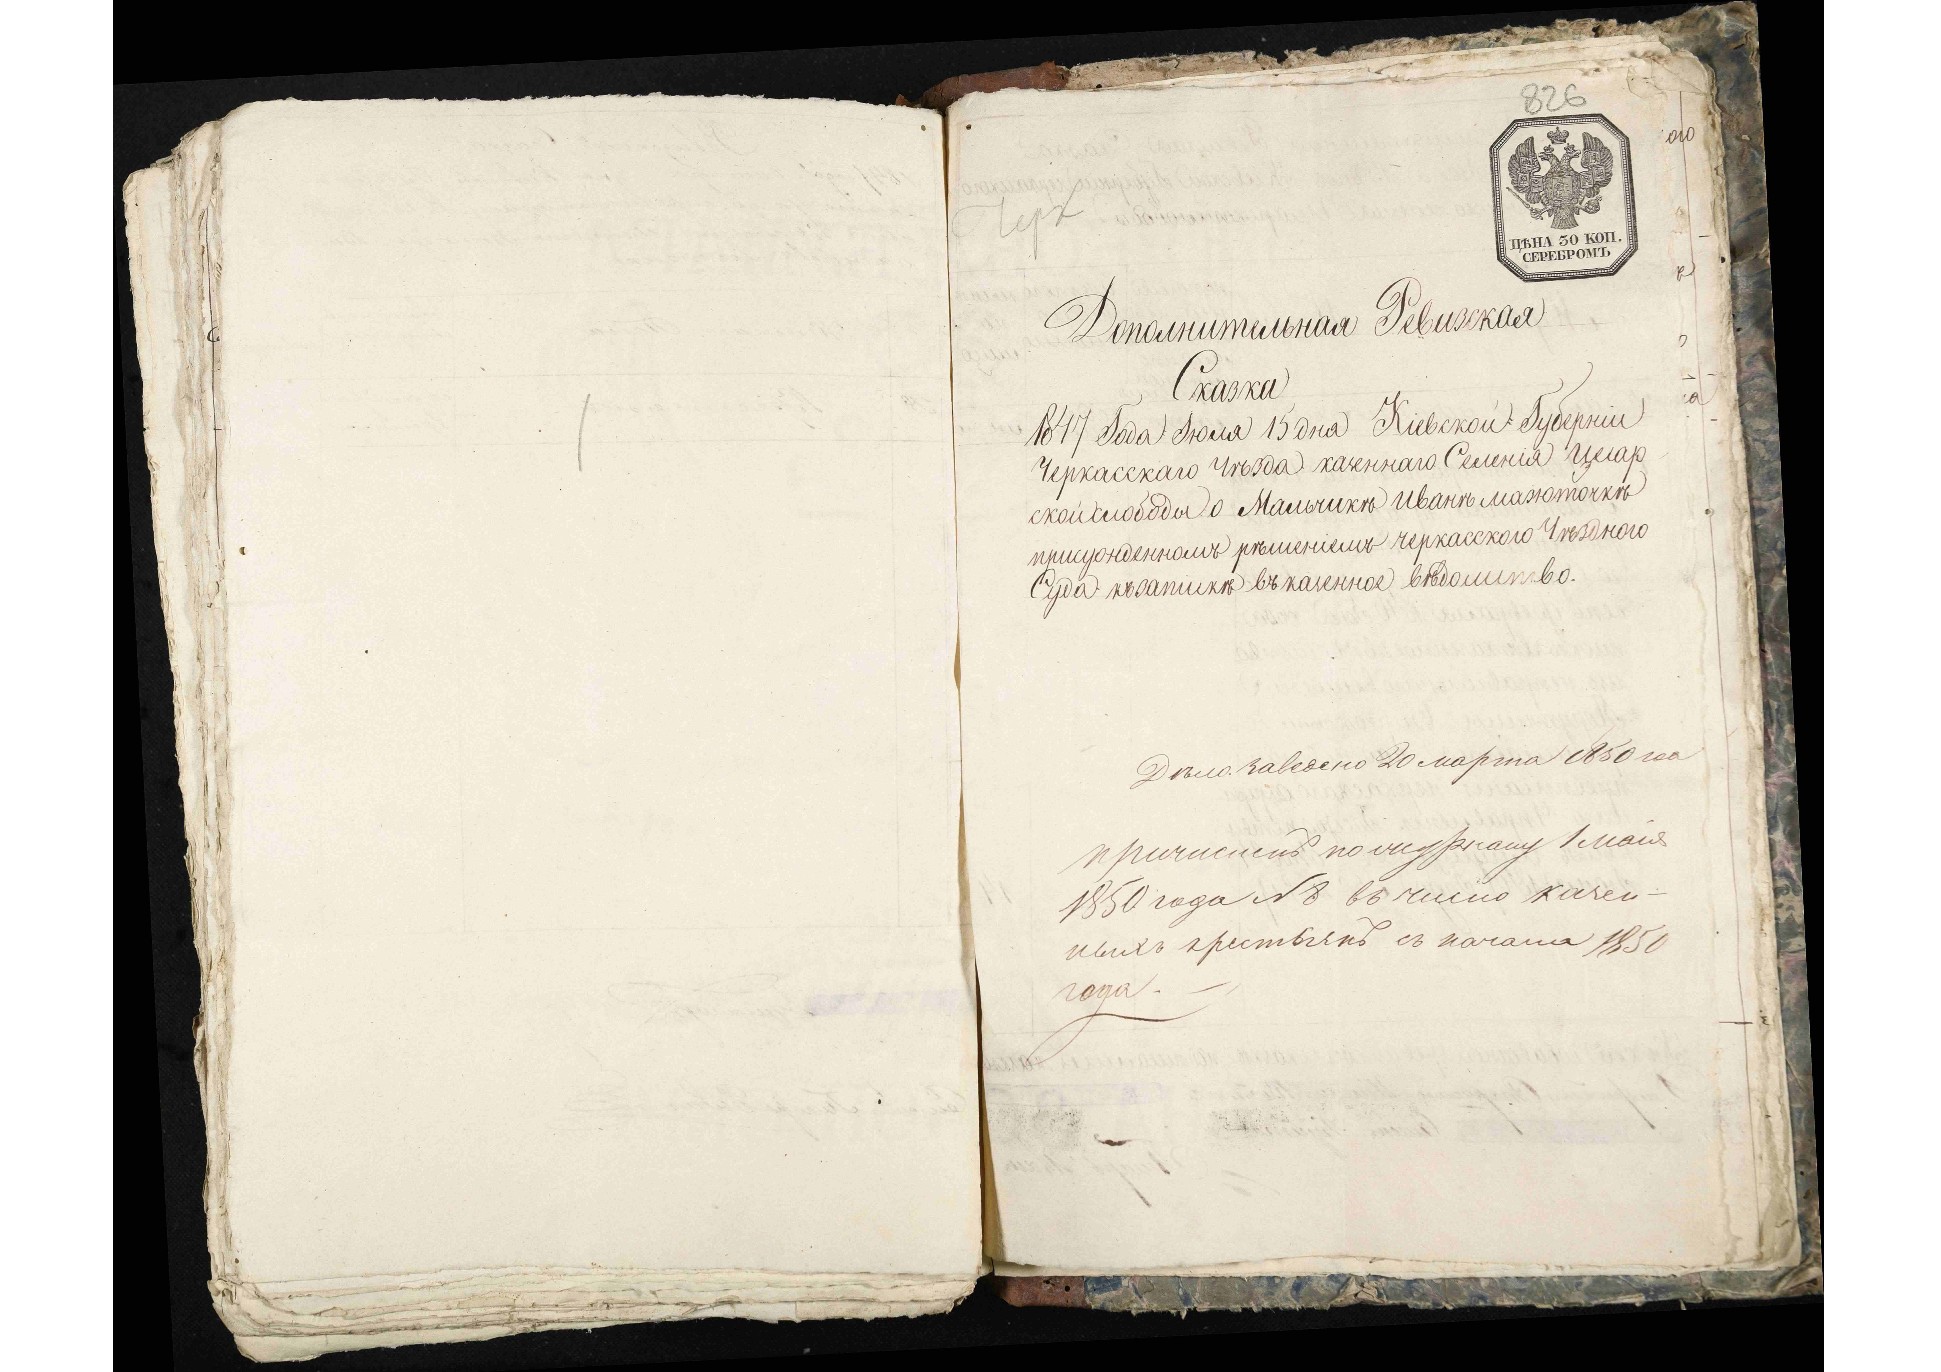 826
Черк
ЦѢНА 30 КОП.
СЕРЕБРОМЪ
Дополнительная Ревизская
Сказка
1847 Года Іюля 15 дня Кіевской Губерніи
Черкасскаго Уѣзда казеннаго Селенія Цесар
ской слободы о Мальчикѣ Иванѣ
присужденномъ рѣшеніемъ черкасского Уѣздного
Суда къ запискѣ въ казенное вѣдомитво.
Дѣло заведено 20 марта 1850 год
причисленъ по журналу 1 маія
1850 года № 8 въ число казен-
ныхъ крестьянъ съ начала 1850
года.